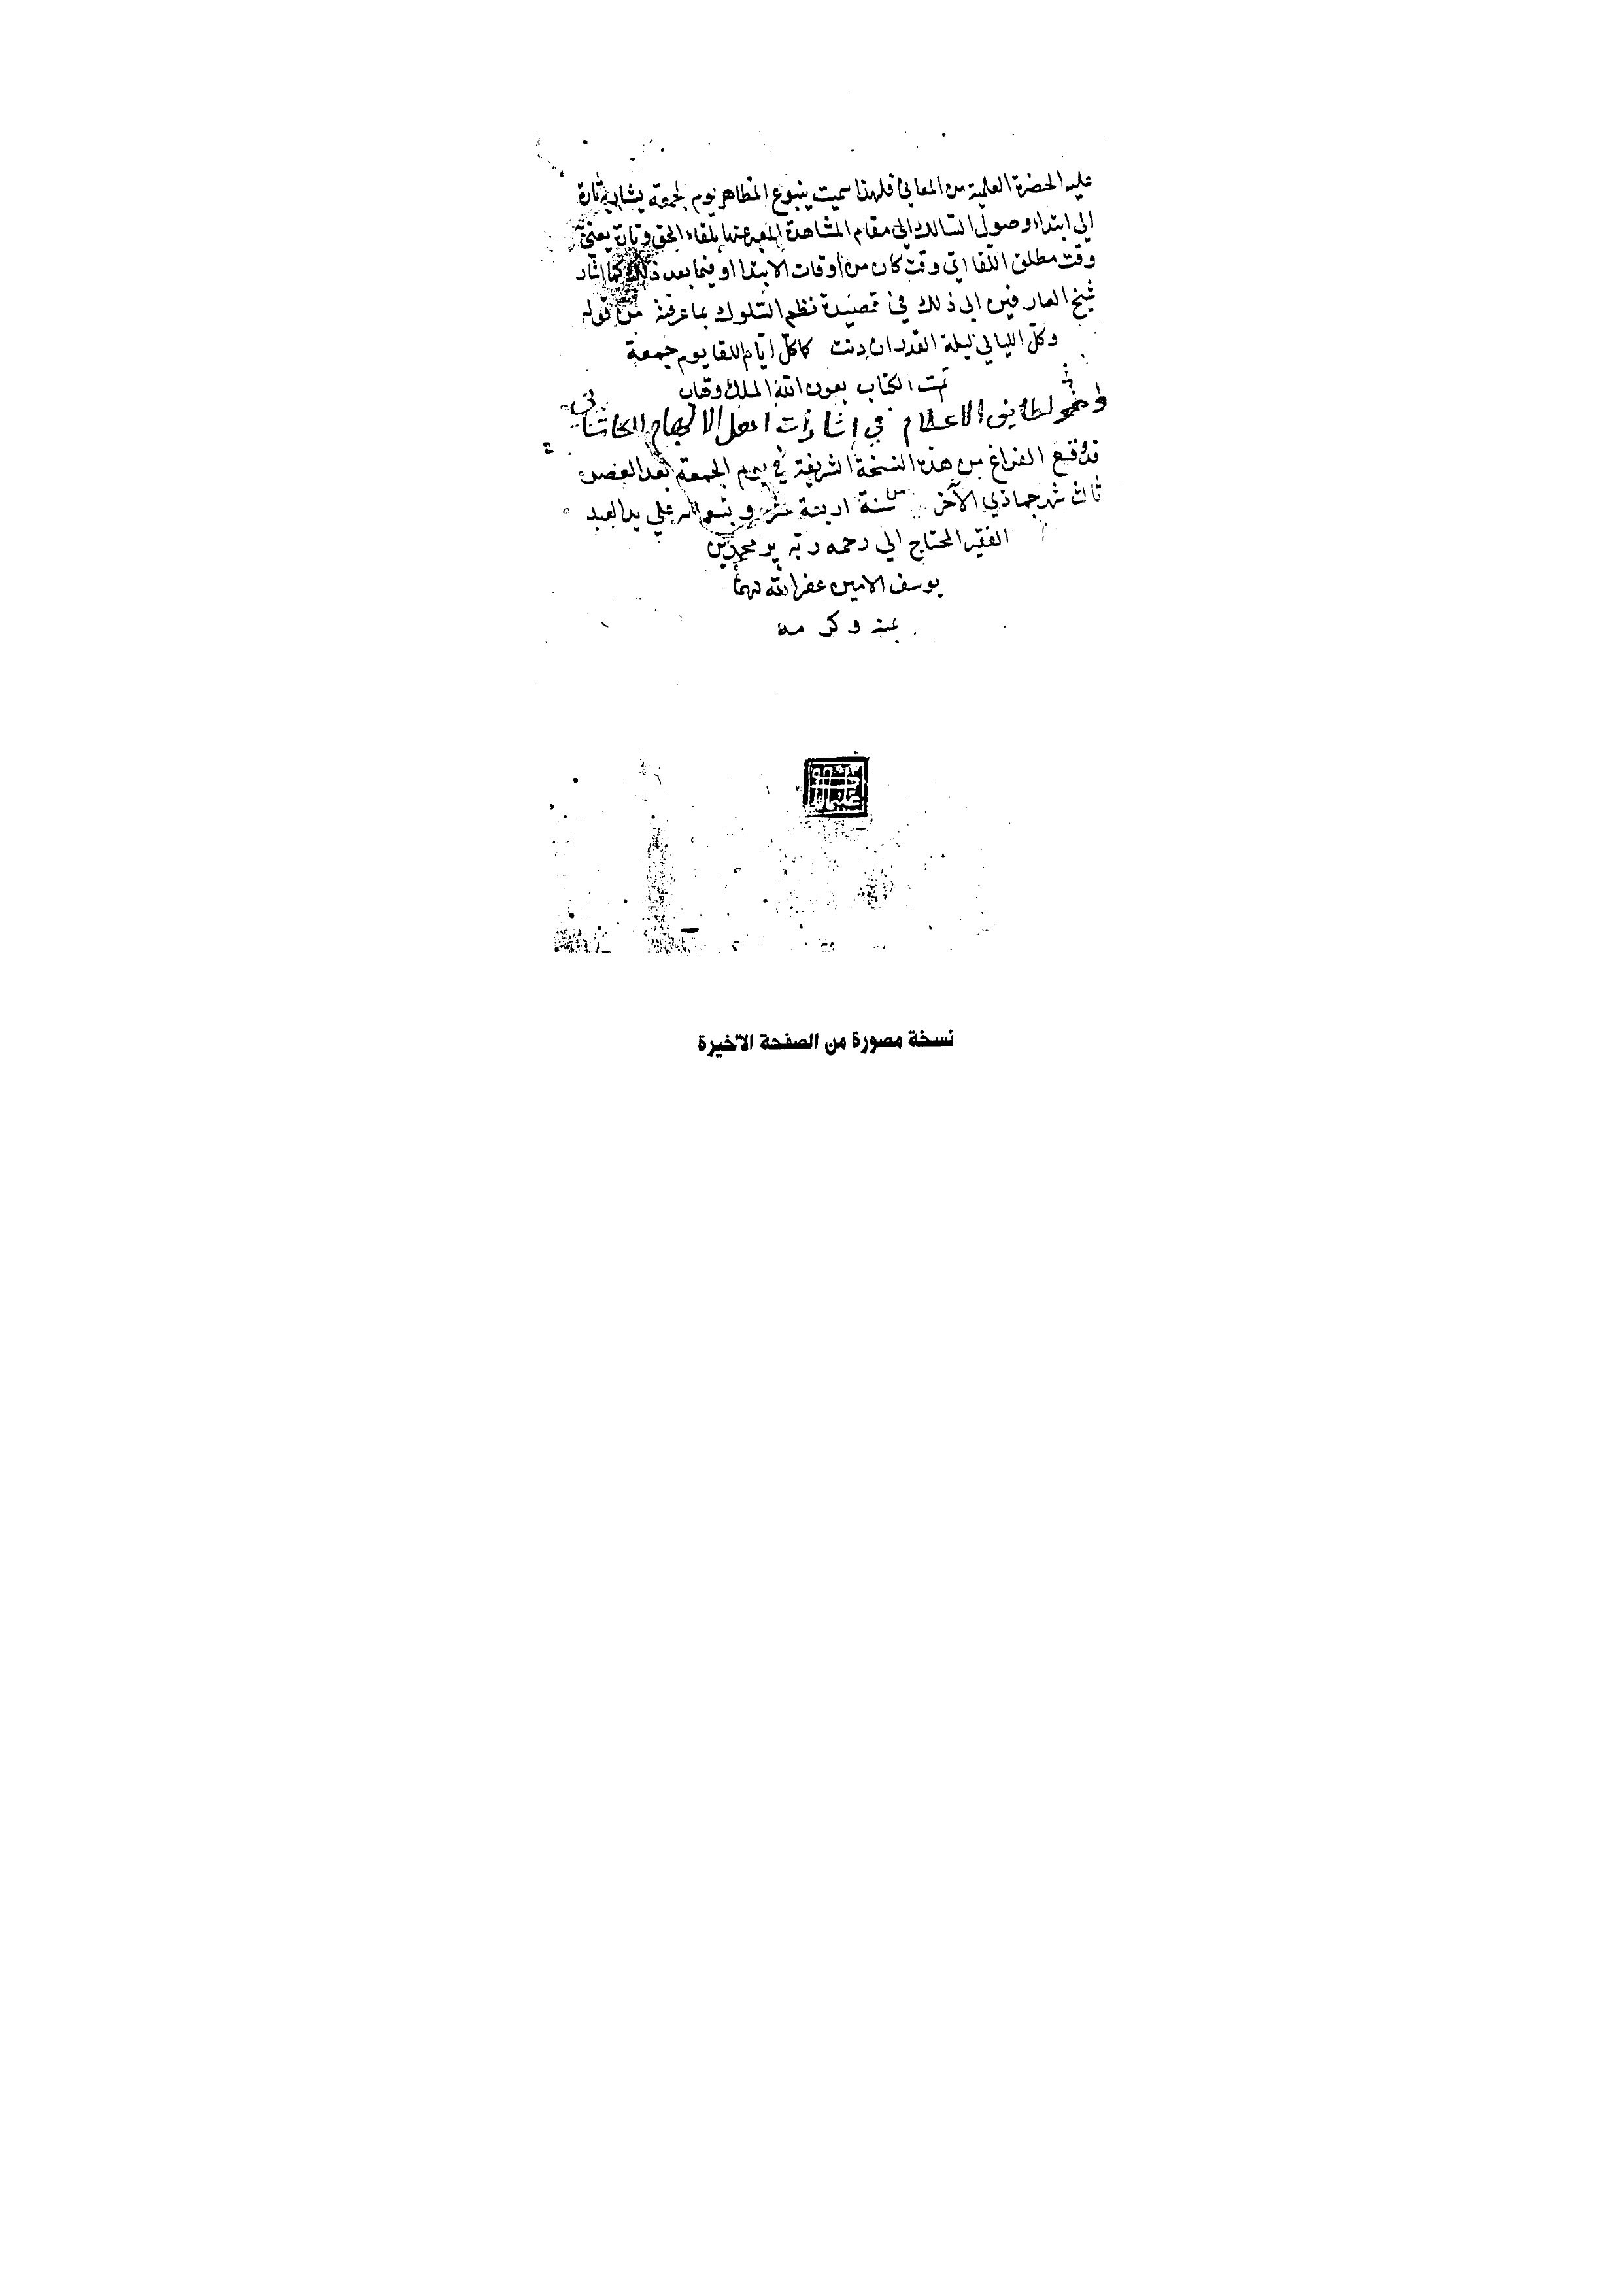 عليه الحضرة العلمية من المعاني فلهذا سميت ينبوع المظاهر يوم الجمعة يشار به تارة
الي ابتداء وصول السالك الى مقام المشاهدة المعبر عنها بلقاء الحق وتارة يعني به
وقت مطلق اللقا اتي وقت كان من اوقات الابتدا او فيما بعد ذلك كما اشار
شيخ العارفين الى ذلك في قصيدة نظم السلوك بما عرفته من قوله
وكل الليالي ليلة القدر ان دنت كما كل ايام اللقا يوم جمعة
تمت الكتاب بعون الله الملك وهاب
لطايف الاعلام في اشارات اهل الالهام الكاشاني
قد وقع الفراغ من هذه النسخة الشريفة في يوم الجمعة بعد العصر
ثالث شهر جماذي الآخر من سنة اربعة عشر و تسعمائه علي يد العبد
الفقير المحتاج الي رحمه ربه پير محمد بن
يوسف الامين عفر الله لهما
بمنه و كرمه
نسخة مصورة من الصفحة الأخيرة